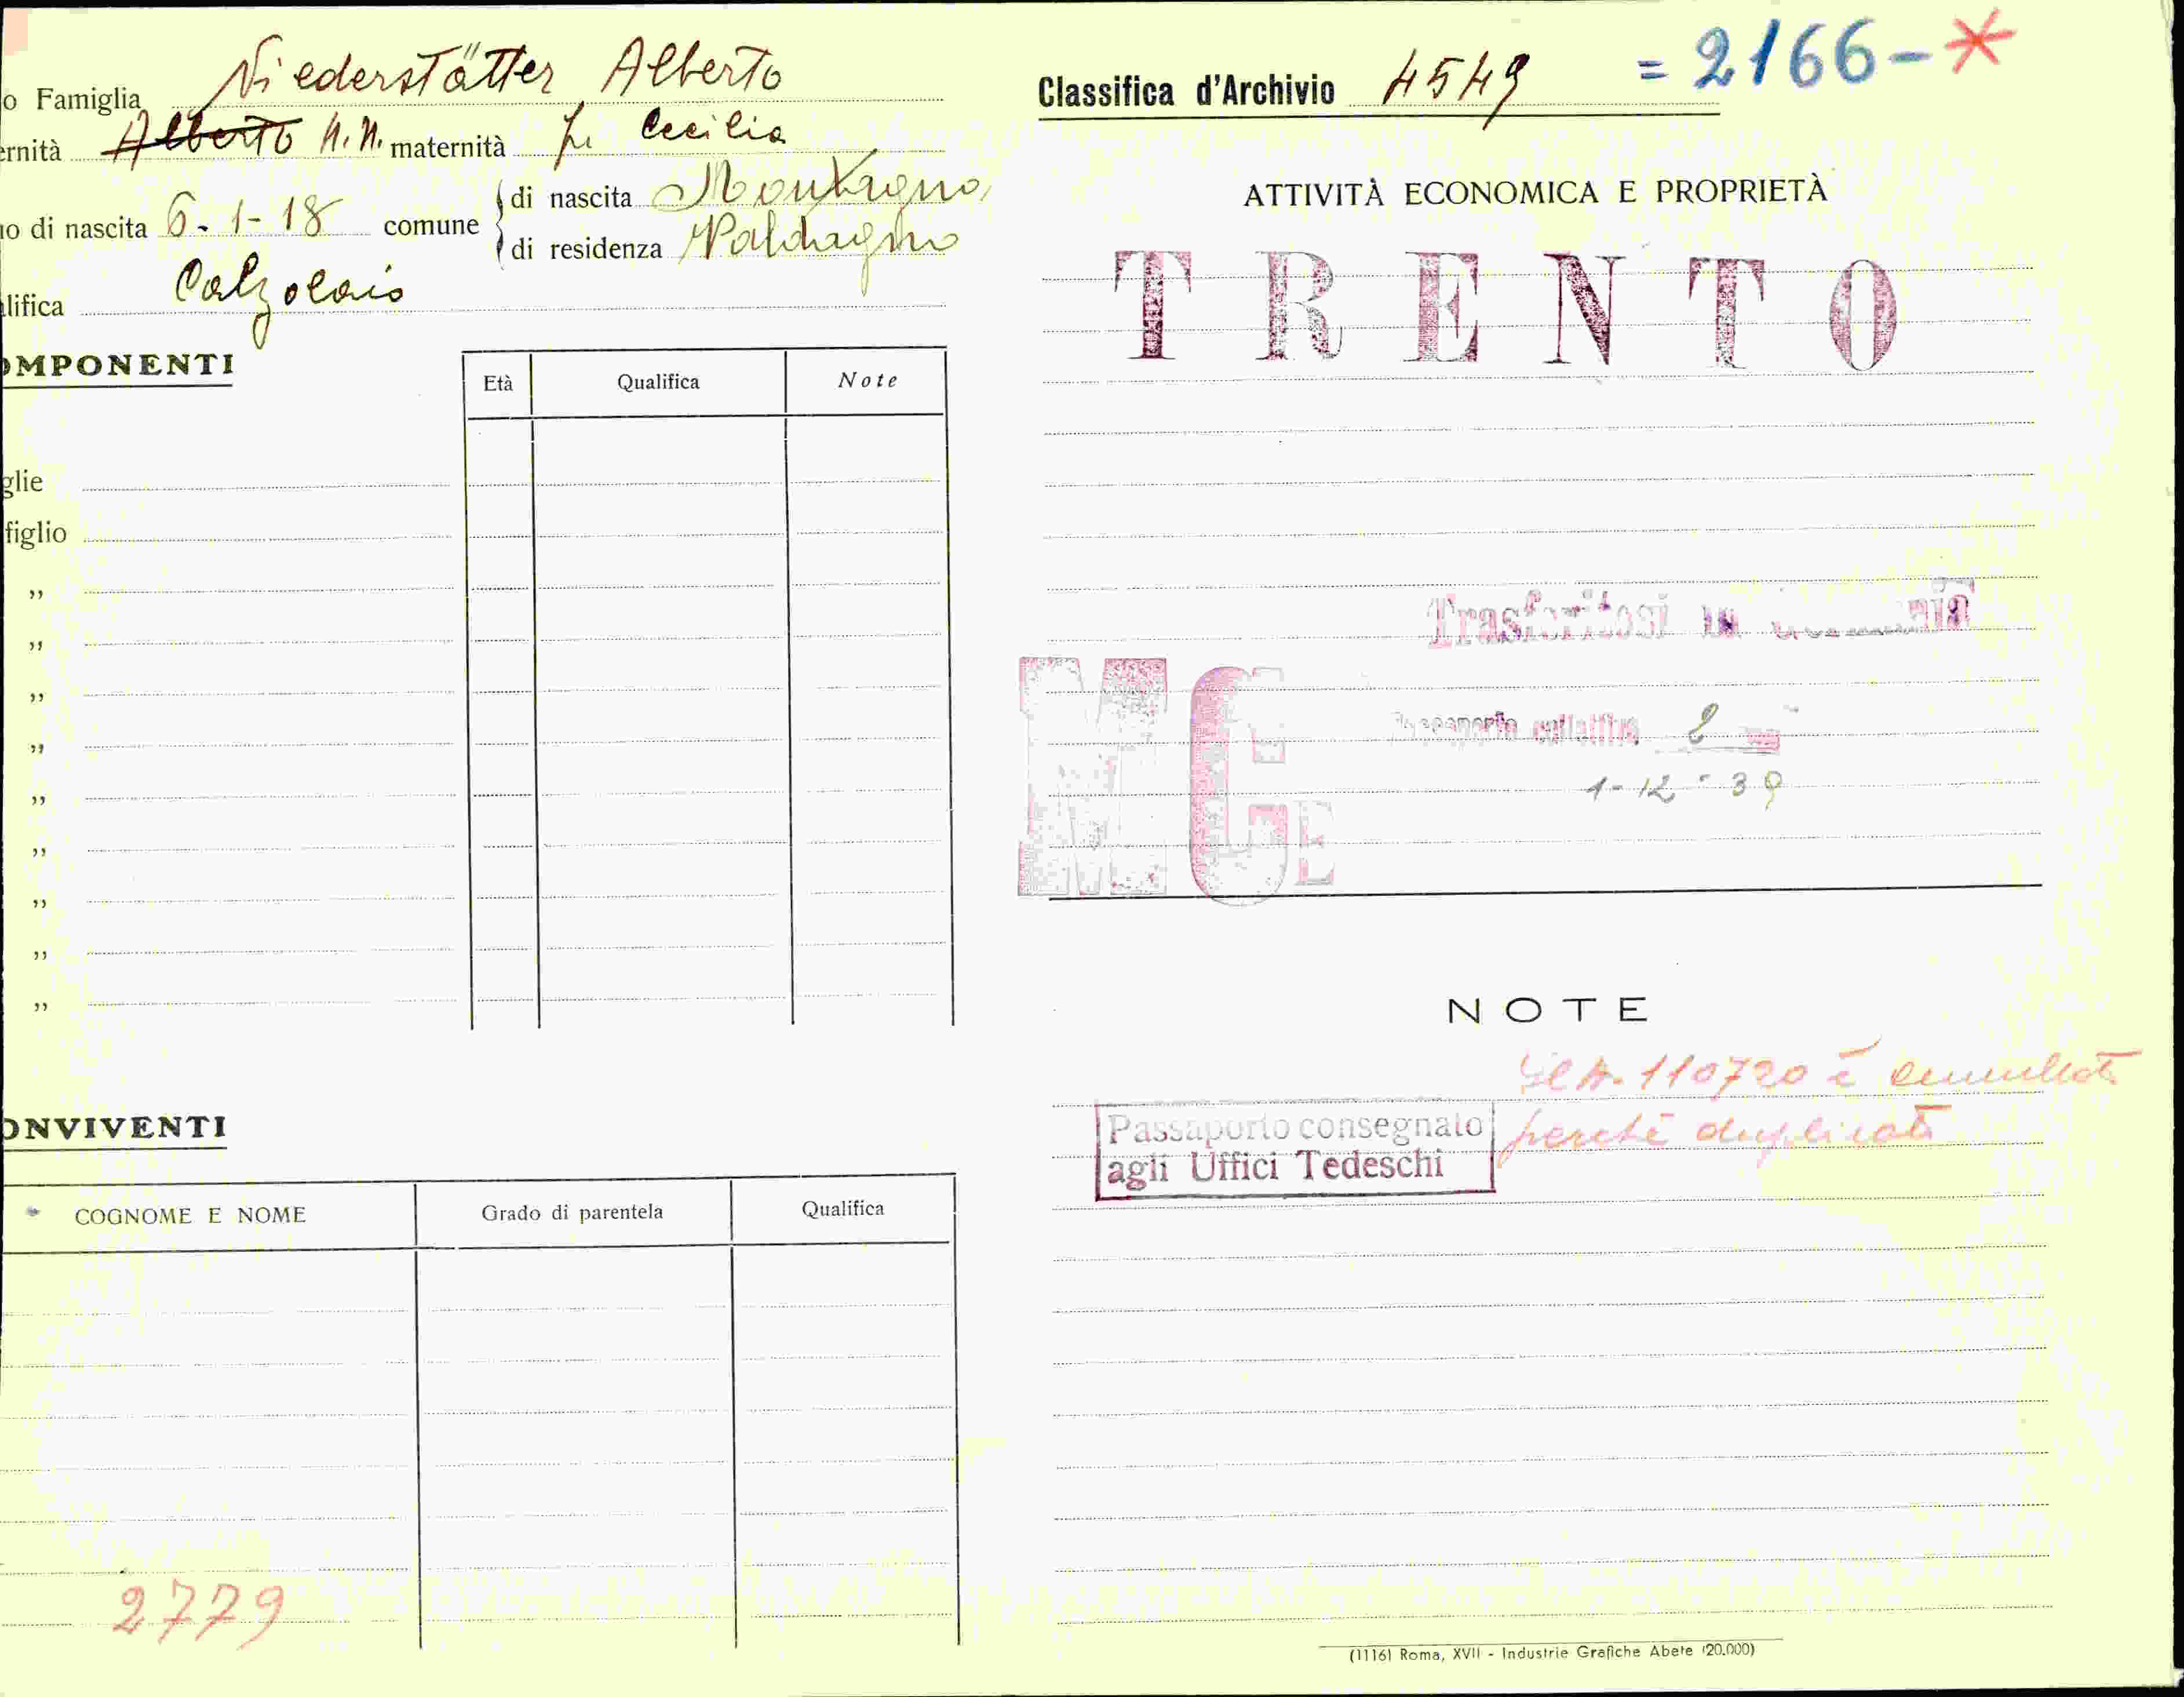 o Famiglia Niederstätter Alberto
ernità Alberto N.N. maternità fu Cecilia
no di nascita 6-1-18 comune di nascita Montagna
di residenza Valdagno
lifica Calzolaio
OMPONENTI
Età Qualifica Note
glie
figlio
"
"
"
"
"
"
"
"
"
ONVIVENTI
COGNOME E NOME Grado di parentela Qualifica
2779
Classifica d'Archivio 4549 = 2166-*
ATTIVITÀ ECONOMICA E PROPRIETÀ
TRENTO
Trasferitosi in
MGE
Passaporto collettivo 2
1-12-39
NOTE
Il N. 110720 è annullato
perché duplicato
Passaporto consegnato
agli Uffici Tedeschi
(1116) Roma, XVII - Industrie Grafiche Abete (20.000)